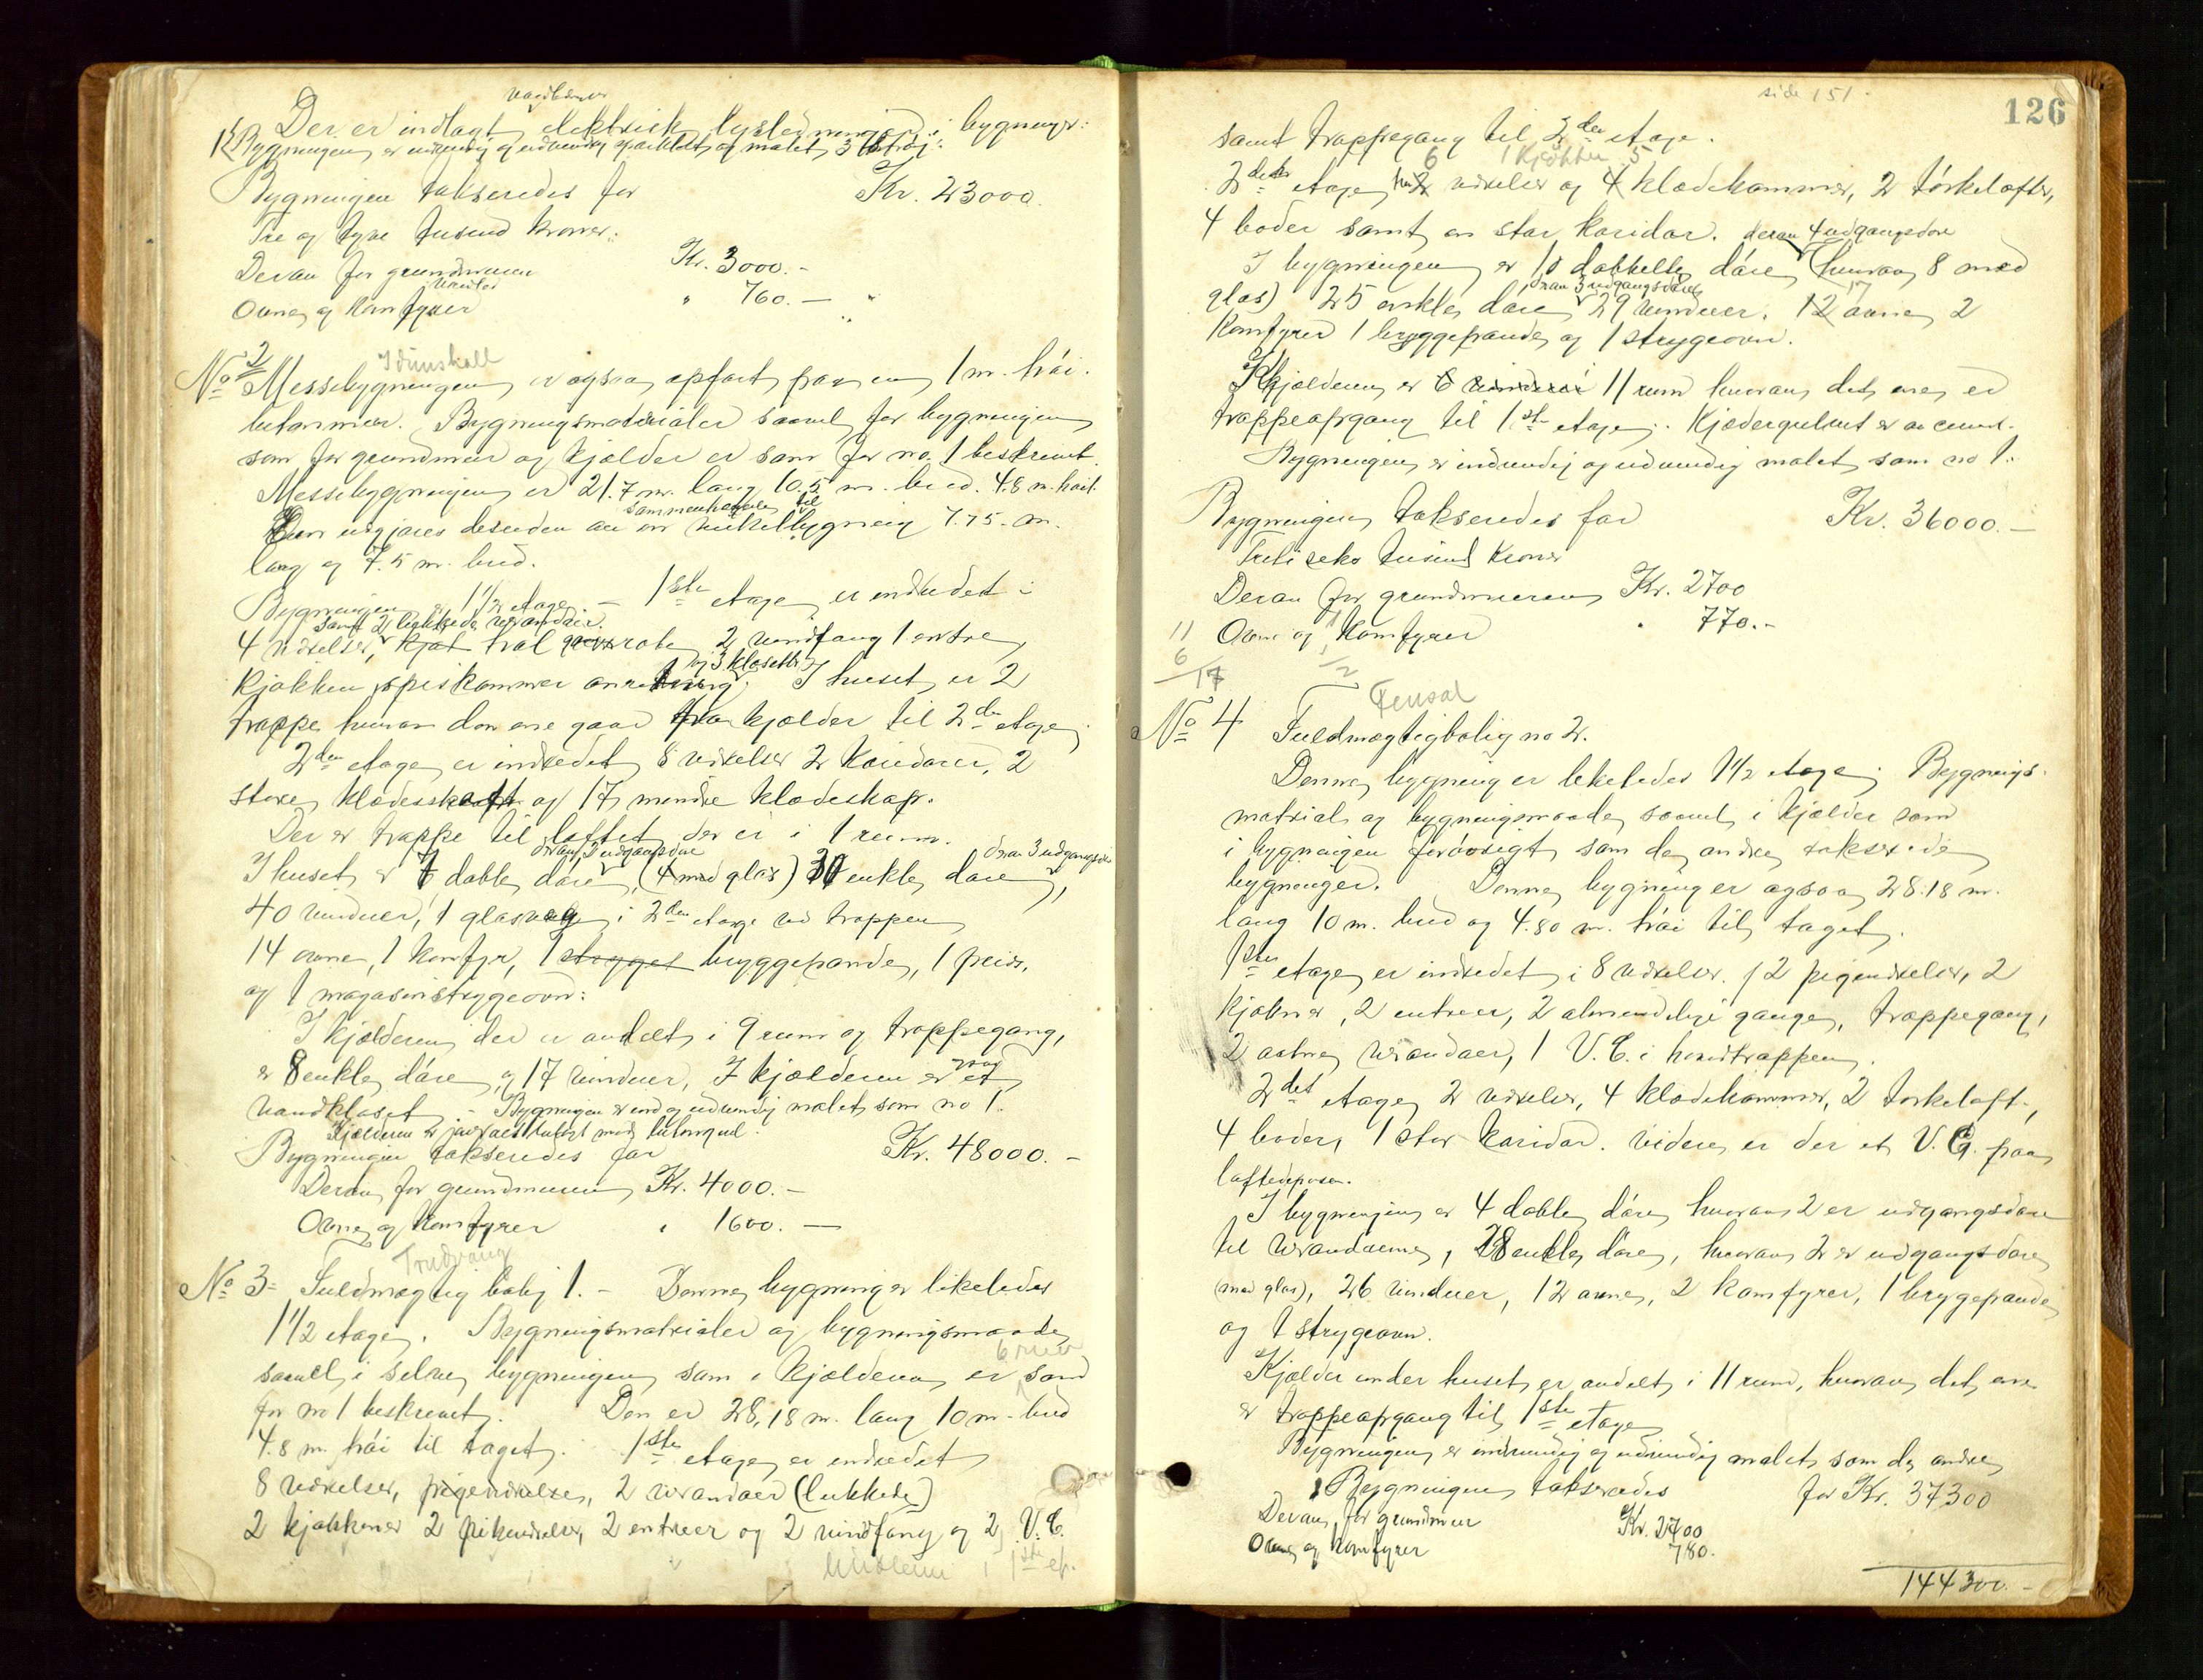 Der er indlagt elektrisk lysledning i bygningen:
Bygningen er indvendig og udvendig og malet, 3
Bygningen takseredes for Kr. 23000.
Tre og tyve tusend kroner:
Derav for grundmuren Kr. 3000.-
Ovne og Komfyrer " 760.-
No 2 Idunshall
Messebygningen er ogsaa opført paa en 1 m. høi
betonmur. Bygningsmaterialer saavel for bygningen
som for grundmur og kjælder er som for no. 1 beskrevet
Messebygningen er 21.7 m. lang 10.5 m. bred. 4.8 m. høit.
sammenhængende til
Den utgjøres desuden av en vinkelbygning 7.75 m.
lang og 7.5 m. bred.
Bygningen er 1 1/2 etage. - 1ste etage er indredet i
samt 2 lukkede verandaer.
4 værelser, hal garderobe, 2 vindfang 1 entre,
og 3 klosetter
kjøkken spiskammer anretning. I huset er 2
trappe hvorav den ene gaar fra kjælder til 2den etage.
2den etage er indredet 8 værelser 2 Koridorer, 2
store klædesskap og 17 mindre klædeskap.
Der er trappe til loftet der er i 1 rum.
derav 2 udgangsdøre derav 3 udgangsdøre
I huset er 6 doble døre, (4 med glas) 30 enkle døre,
40 vinduer, 1 glasvæg i 2den etage ved trappen
14 ovne, 1 komfyr, 1 bryggepande, 1 peis,
og 1 magasinstrygeovn:
I kjælderen der er avdelt i 9 rum og trappegang,
er 8 enkle døre og 17 vinduer, I kjælderen er et
vandkloset. - Bygningen er ind og udvendig malet som no 1.
Kjælderen er belagt med betongul.
Bygningen takseredes for Kr. 48000.-
Derav for grundmuren Kr. 4000.-
Ovne og Komfyrer " 1600.-
Trudvang
No 3 Fuldmægtig bolig 1. - Denne bygning er likeledes
1 1/2 etage. Bygningsmatrialer og bygningsmaade
saavel i selve bygningen som i Kjælderen er som
for no 1 beskrevet. Den er 28,18 m. lang 10 m. bred
4.8 m. høi til taget. 1ste etage er indredet
8 værelser, pigeværelser, 2 verandaer (lukkede)
2 kjøkkener 2 pikeværelser, 2 entreer og 2 vindfang og 2 V.C.
i 1ste et.
side 151.
126
samt trappegang til 2den etage.
6 1 Kjøkken 5
2den etage har 2 værelser og 4 klædekammer, 2 tørkelofter,
4 boder samt en stor koridor. derav 4 udgangsdøre
I bygningen er 10 dobbelte døre (hvorav 8 med
derav 3 udgangsdøre 17
glas) 25 enkle døre 29 vinduer. 12 ovne, 2
komfyrer 1 bryggepande og 1 strygeovn.
I Kjælderen er 11 rum hvorav det ene er
trappeopgang til 1ste etage. Kjældergulvet er av cement.
Bygningen er indvendig og udvendig malet som no 1.
Bygningen takseredes for Kr. 36000.-
Treti seks tusind Kroner
Derav for grundmuren Kr. 2700
Ovne og Komfyrer " 770.-
11
6
17
1
2
Fensal
No 4 Fuldmægtigbolig no 2.
Denne bygning er likeledes 1 1/2 etage. Bygnings-
matrial og bygningsmaade saavel i kjælder som
i bygningen forøvrigt som de andre takserede
bygninger. Denne bygning er ogsaa 28.18 m.
lang 10 m. bred og 4.80 m. høi til taget.
1ste etage er indredet i 8 værelser. 2 pigeværelser, 2
kjøkner, 2 entreer, 2 almindelige gange, trappegang,
2 aabne verandaer, 1 V.C. i hovedtrappen.
2det etage 2 værelser, 4 klædekammer, 2 tørkeloft,
4 boder, 1 stor koridor. Videre er der et V.C. paa
I bygningen er 4 doble døre, hvorav 2 er udgangsdøre
til verandaerne, 28 enkle døre, hvorav 2 er udgangsdøre
(med glas), 26 vinduer, 12 ovne, 2 komfyrer, 1 bryggepande
og 1 strygeovn.
Kjælder under huset er avdelt i 11 rum, hvorav det ene
er trappeopgang til 1ste etage
Bygningen er indvendig og udvendig malet som de andre
Bygningen takseredes for Kr. 37300
Derav for grundmur Kr. 2700
Ovne og Komfyrer 780.
144300.-